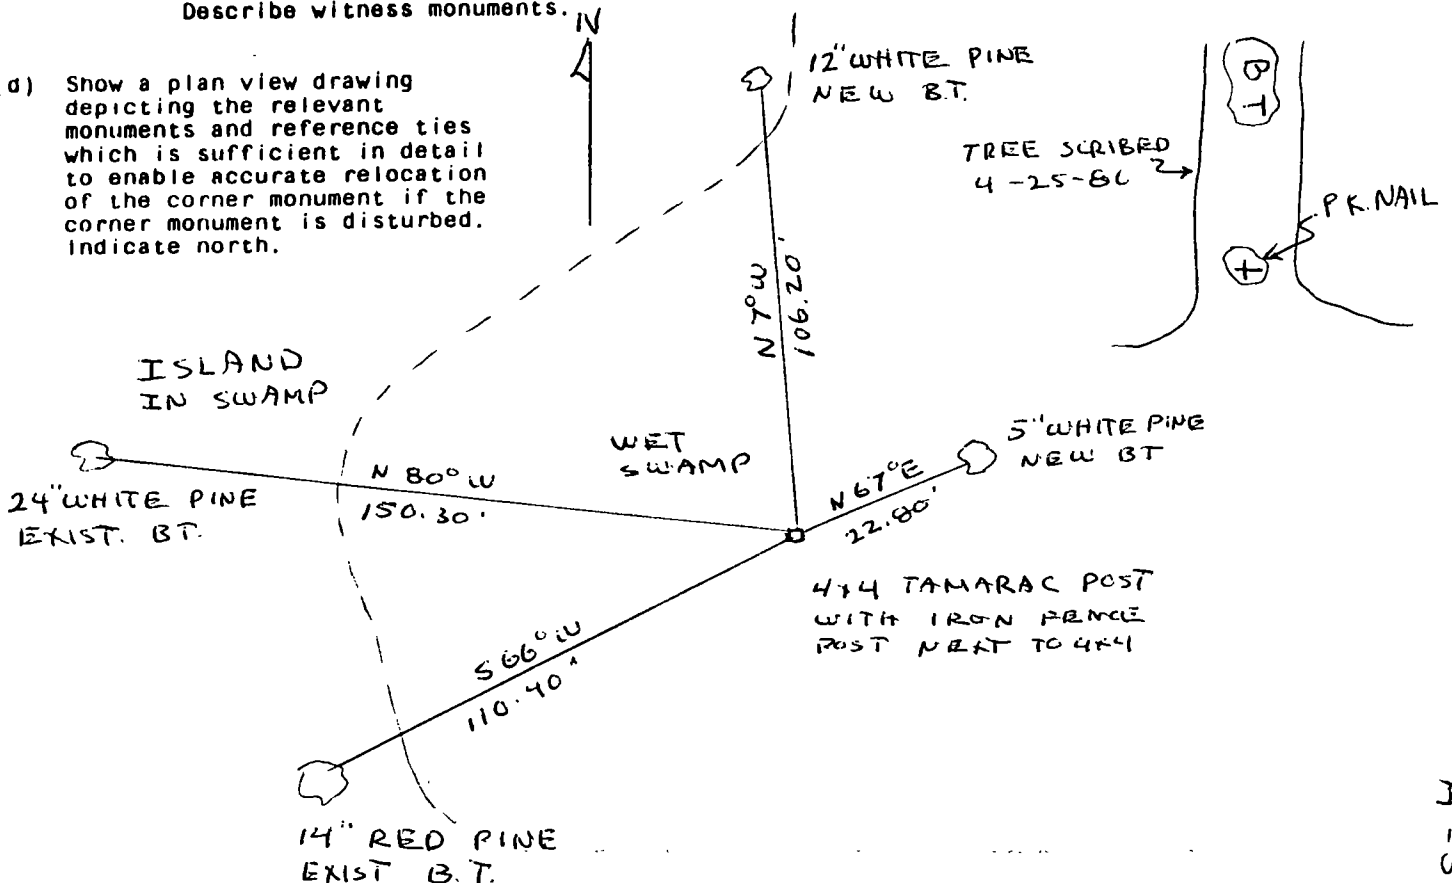 Describe witness monuments.
N
d) Show a plan view drawing
depicting the relevant
monuments and reference ties
which is sufficient in detail
to enable accurate relocation
of the corner monument if the
corner monument is disturbed.
Indicate north.
12" WHITE PINE
NEW B.T.
BT
TREE SCRIBED
P.K. NAIL
N 7° W
106.20'
ISLAND
IN SWAMP
WET
SWAMP
5" WHITE PINE
NEW BT
N 80° W
150.30'
24" WHITE PINE
EXIST. BT.
N 67° E
22.80'
4x4 TAMARAC POST
WITH IRON FENCE
POST NEXT TO 4x4
S 66° W
110.40'
14" RED PINE
EXIST B.T.